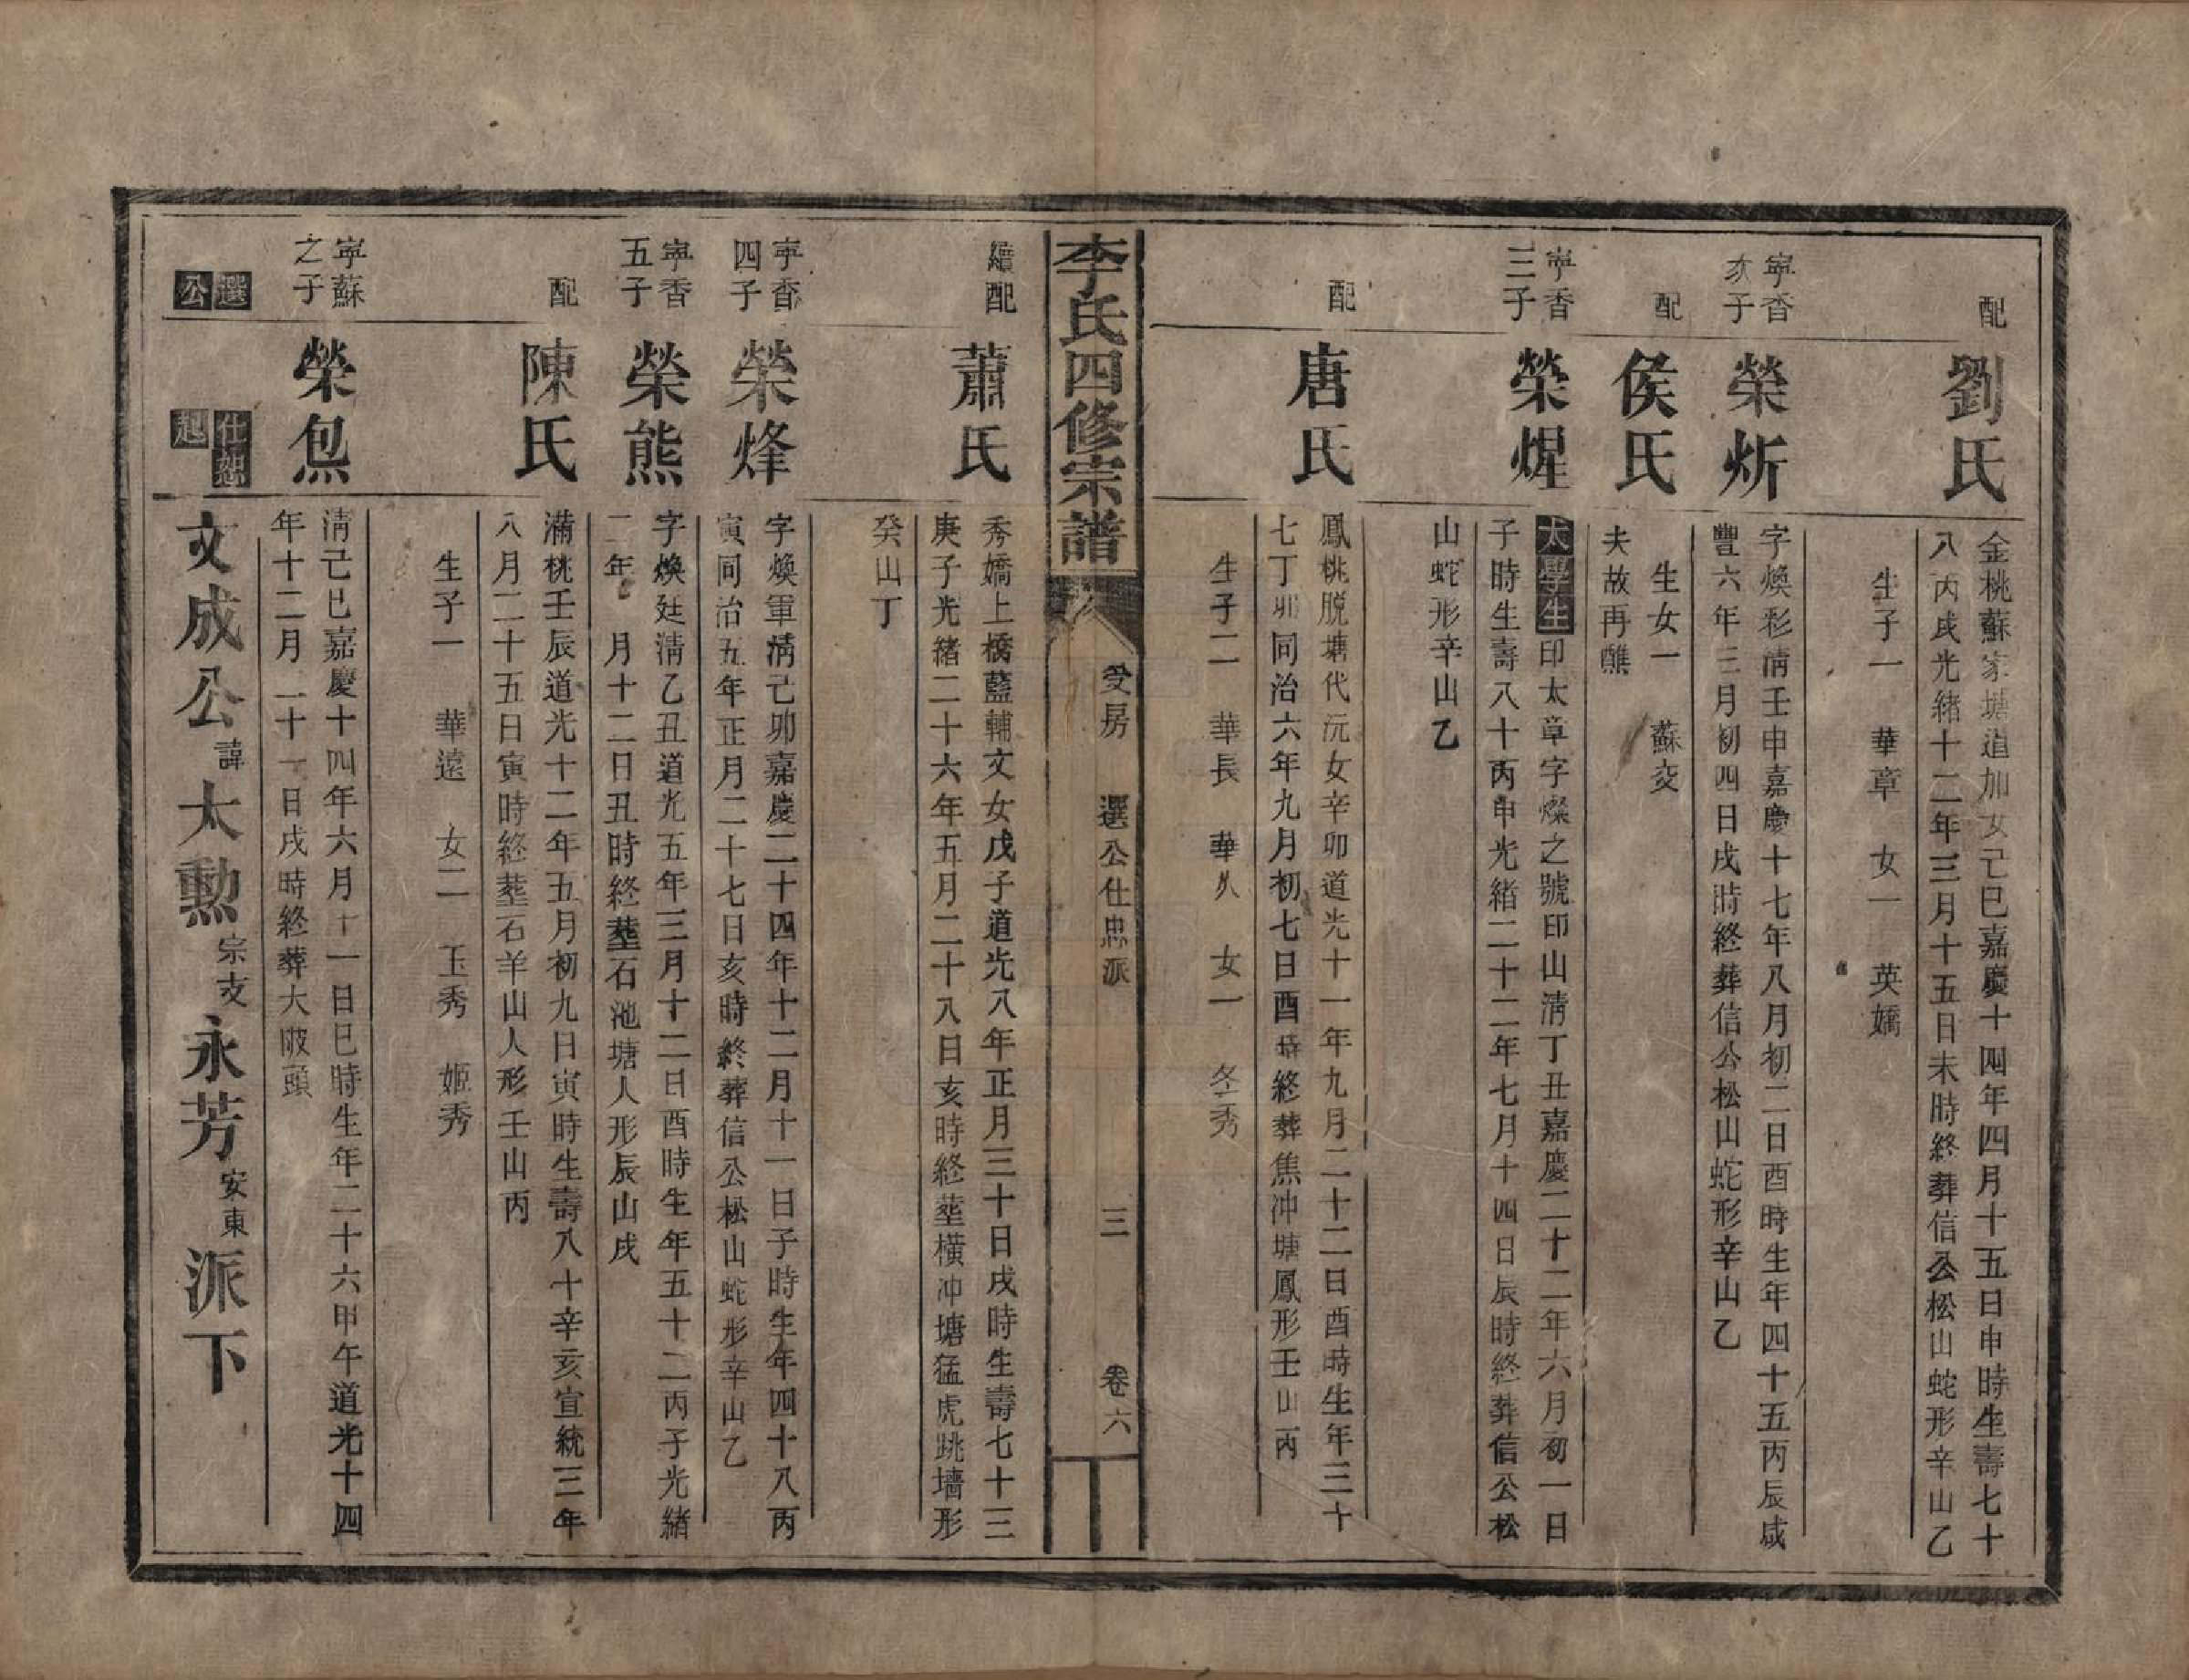 配
劉氏
金桃蘇家塘道加女己巳嘉慶十四年四月十五日申時生壽七十
八丙戌光緒十二年三月十五日未時終葬信公松山蛇形辛山乙
生子一 華章 女一 英嬌
寧香
次子
榮炘
字煥彩淸壬申嘉慶十七年八月初二日酉時生年四十五丙辰咸
豐六年三月初四日戌時終葬信公松山蛇形辛山乙
配
侯氏
生女一 蘇姣
夫故再醮
寧香
三子
榮煋
太學生印太章字燦之號印山淸丁丑嘉慶二十二年六月初一日
子時生壽八十丙申光緒二十二年七月十四日辰時終葬信公松
山蛇形辛山乙
配
唐氏
鳳桃脱塘代沅女辛卯道光十一年九月二十二日酉時生年三十
七丁卯同治六年九月初七日酉時終葬焦冲塘鳳形壬山丙
生子二 華長 華久 女一 冬秀
李氏四修宗譜
受房 選公仕忠派 三 卷六
繼配
蕭氏
秀嬌上橋藍輔文女戊子道光八年正月三十日戌時生壽七十三
庚子光緒二十六年五月二十八日亥時終塟橫冲塘猛虎跳墻形
癸山丁
寧香
四子
榮烽
字煥軍淸己卯嘉慶二十四年十二月十一日子時生年四十八丙
寅同治五年正月二十七日亥時終葬信公松山蛇形辛山乙
寧香
五子
榮熊
字煥廷淸乙丑道光五年三月十二日酉時生年五十二丙子光緒
二年 月十二日丑時終塟石池塘人形辰山戌
配
陳氏
滿桃壬辰道光十二年五月初九日寅時生壽八十辛亥宣統三年
八月二十五日寅時終塟石羊山人形壬山丙
生子一 華遠 女二 玉秀 姬秀
寧蘇
之子
榮炰
淸己巳嘉慶十四年六月十一日巳時生年二十六甲午道光十四
年十二月二十一日戌時終葬大陂頭
選公
仕 起
文成公諱太勳宗支永芳安東派下